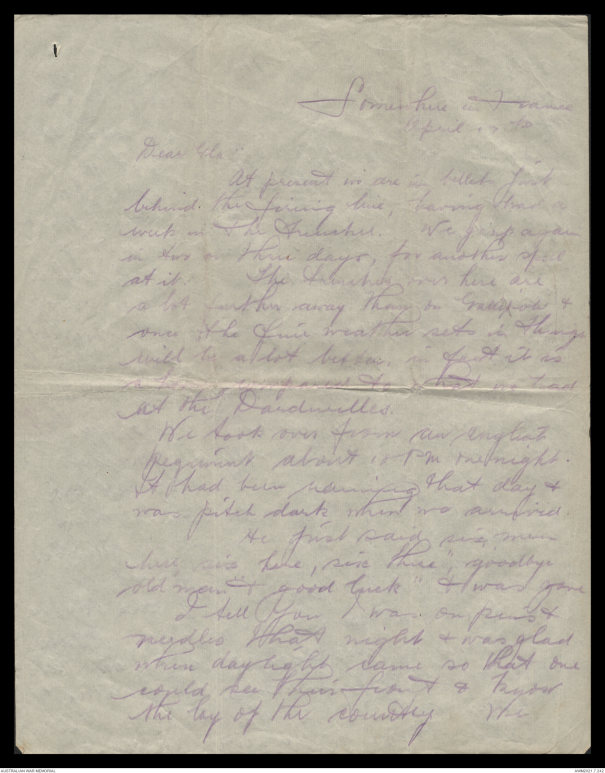 Somewhere in France
April
Dear Ela
At present we are in billets just
behind the firing line, having had a
week in the trenches. We go up again
in two or three days, for another spell
at it. The trenches over here are
a lot further away than on Gallipoli &
once the fine weather sets in things
will be a lot better, in fact it is
compared to what we had
at the Dardanelles.
We took over from an English
Regiment about 10 PM one night.
It had been raining that day &
was pitch dark when we arrived.
He just said six men
here, six here, six there", "goodbye
old man" & good luck" & was gone
I tell you I was on pins &
needles that night & was glad
when daylight came so that one
could see their front & know
the lay of the country We
AUSTRALIAN WAR MEMORIAL